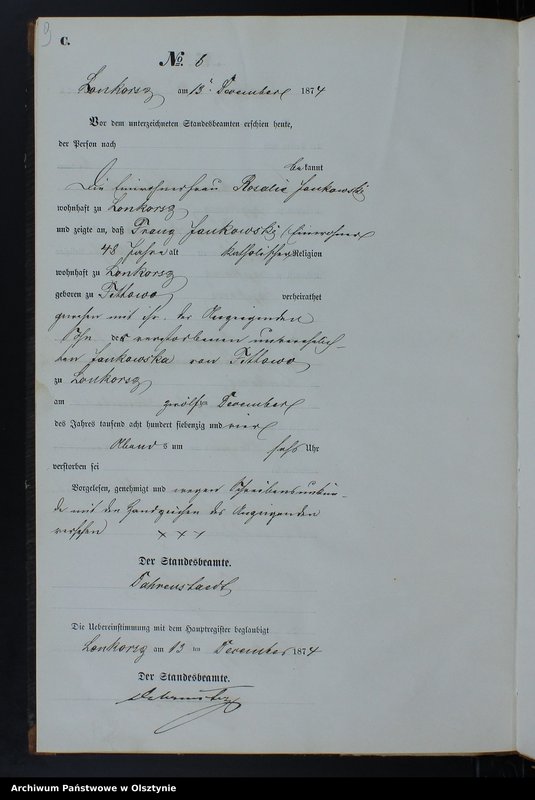 9
C.
No. 6
Lonkorsz am 13t December 1874
Vor dem unterzeichneten Standesbeamten erschien heute,
der Person nach
bekannt
Die Einwohnerfrau Rosalie Jankowski
wohnhaft zu Lonkorsz
und zeigte an, daß Franz Jankowski, Einwohner
48 Jahre alt katholischer Religion
wohnhaft zu Lonkorsz
geboren zu Tittowo verheirathet
gewesen mit ihr, der Anzeigenden
Sohn der verstorbenen unverehelich-
ten Jankowska von Tittowo
zu Lonkorsz
am zwölf December
des Jahres tausend acht hundert siebenzig und vier
Abends um sechs Uhr
verstorben sei
Vorgelesen, genehmigt und wegen Schreibensunkun-
de mit den Handzeichen des Anzeigenden
versehen x x x
Der Standesbeamte.
Die Uebereinstimmung mit dem Hauptregister beglaubigt
Lonkorsz am 13 ten December 1874
Der Standesbeamte.
Archiwum Państwowe w Olsztynie